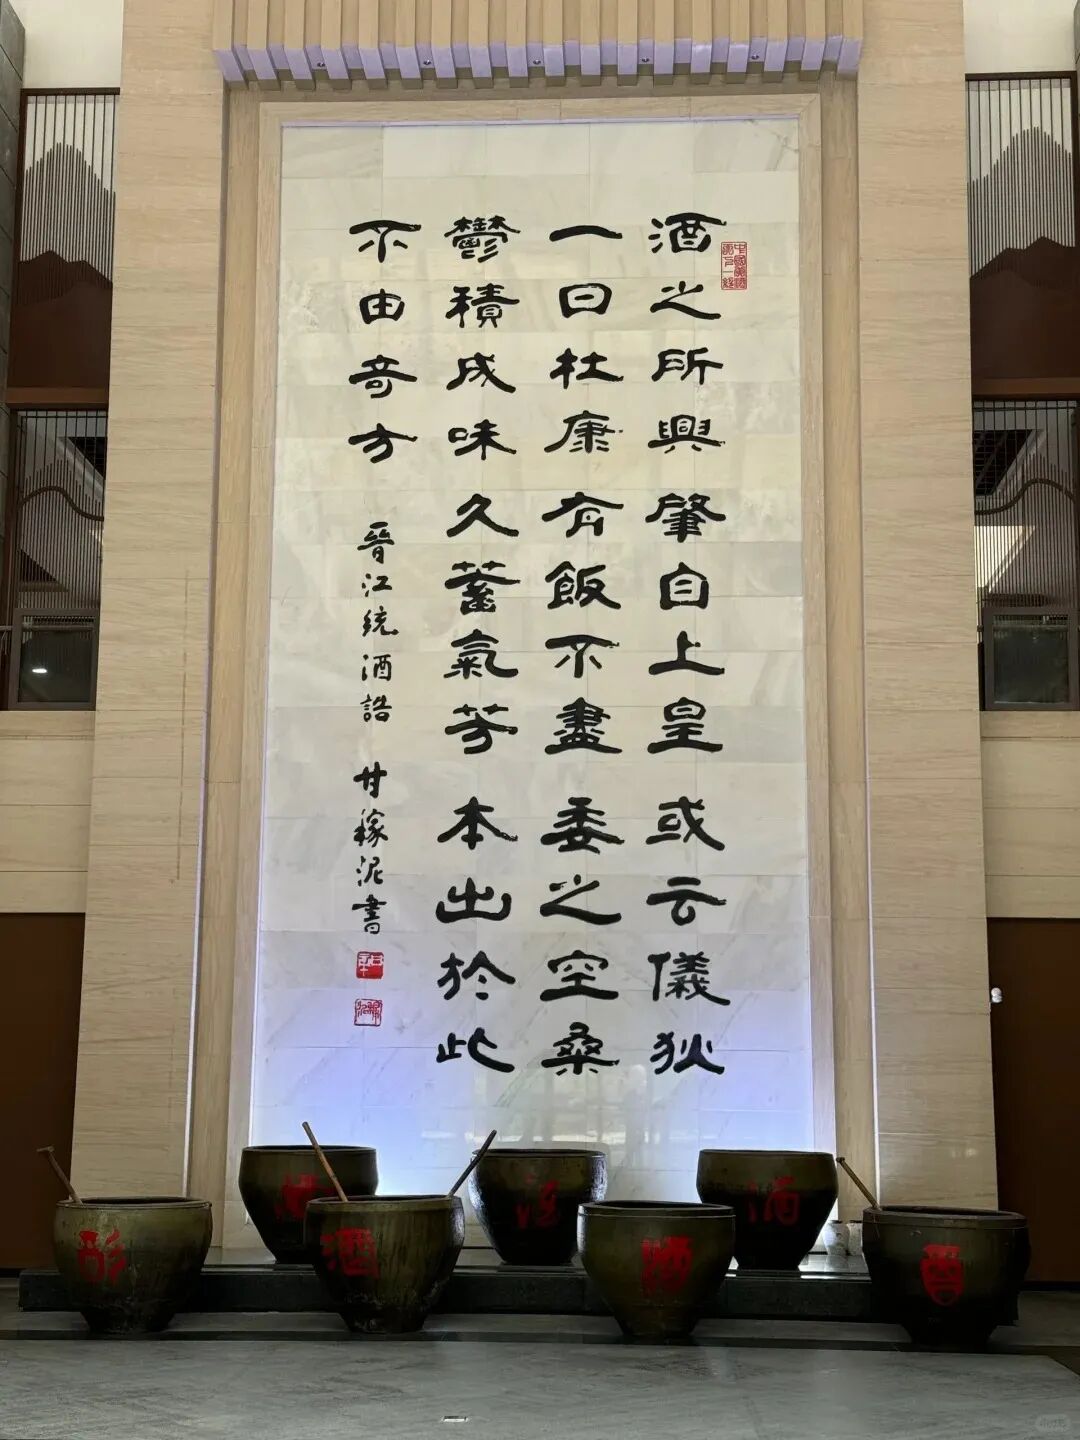 酒之所興肇自上皇或云儀狄
一曰杜康有飯不盡委之空桑
鬱積成味久蓄氣芳本出於此
不由奇方
晉江統酒誥 甘稼泥書
酒
酒
酒